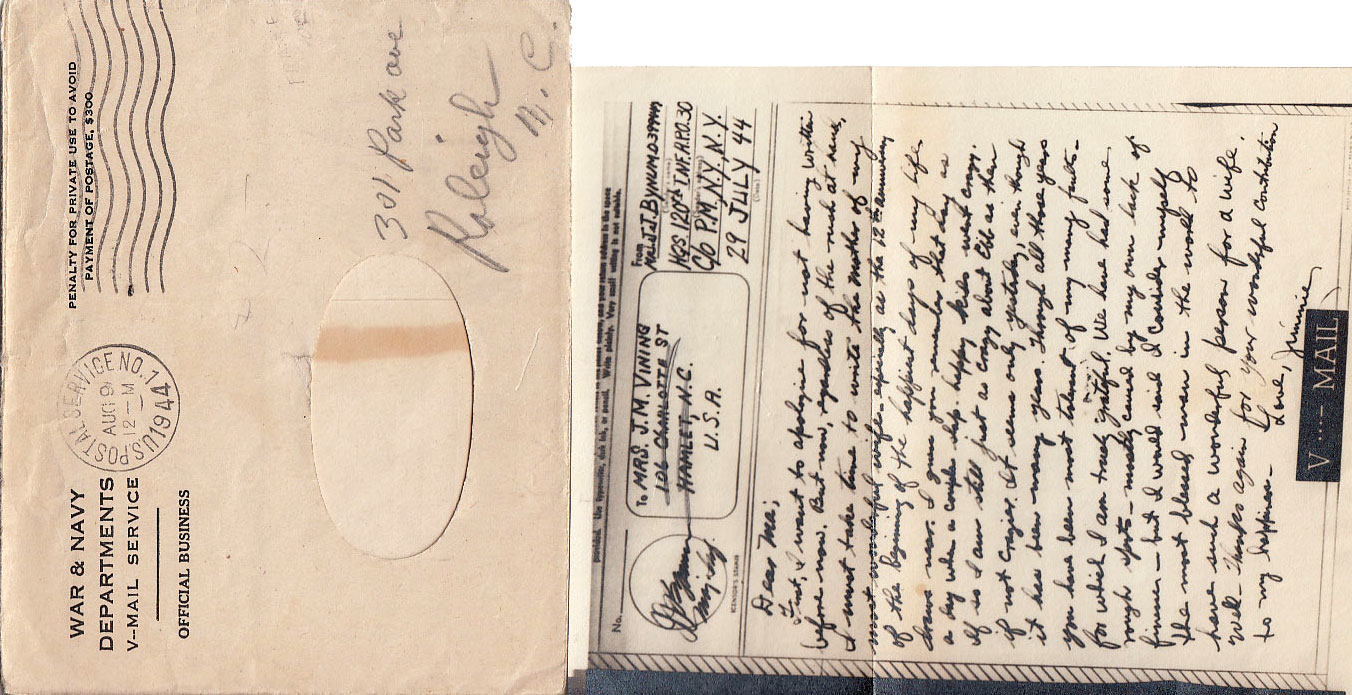 WAR & NAVY
DEPARTMENTS
V-MAIL SERVICE
OFFICIAL BUSINESS
U.S. POSTAL SERVICE NO. 1
AUG 9
12-M
1944
PENALTY FOR PRIVATE USE TO AVOID
PAYMENT OF POSTAGE, $300
301 Park ave
Raleigh
N. C.
No.
(CENSOR'S STAMP)
To MRS. J.M. VINING
106 CHARLOTTE ST
HAMLET, N.C.
U.S.A.
From
MAJ. J.T. BYNUM
HQS 120TH INF. A.P.O. 30
C/O P.M., N.Y., N.Y.
29 JULY 44
Dear Ma;
First, I want to apologize for not having written
before now. But now, regardless of the much at hand,
I must take time to write the mother of my
most wonderful wife especially as the 12th anniversary
of the beginning of the happiest days of my life
draws near. I guess you remember that day as
a day when a couple of happy kids went crazy.
If so I am still just as crazy about as then
if not crazier. It seems only yesterday, even though
it has been many years. Through all those years
you have been most tolerant of my many faults -
for which I am truly grateful. We have had some
rough spots - mostly caused by my own lack of
finesse - but I would and I consider myself
the most blessed man in the world to
have such a wonderful person for a wife.
Well - Thanks again for your wonderful contribution
to my happiness - Love, Jimmie
V ···— MAIL